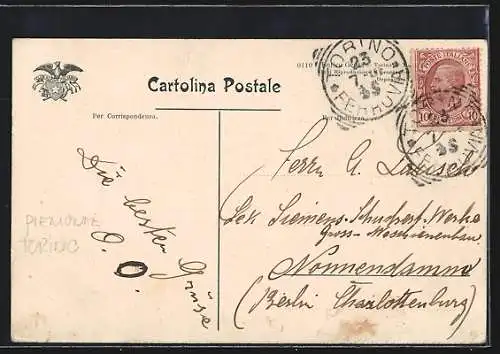 Cartolina Postale
Per Corrispondenza.
TORINO
25
FERROVIA
POSTE ITALIANE
10 10
Die besten
Grüsse
O. O.
PIEMONTE
TORINO
Herrn G.
Siemens-Schuckert-Werke
Gross-Maschinenbau
Nonnendamm
(Berlin Charlottenburg)